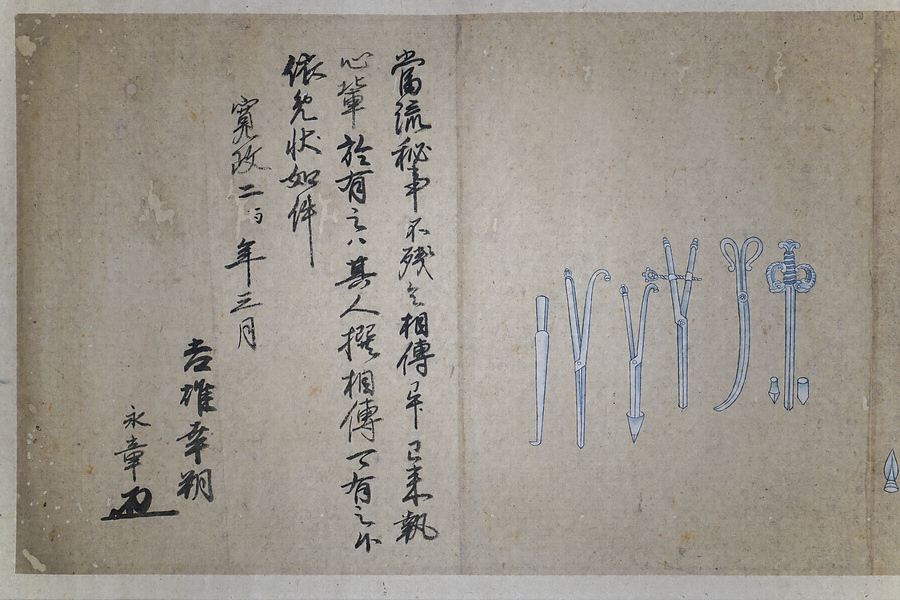 當流秘事不残令相傳早已来執
心輩於有之ハ其人撰相傳可有之外
依免状如件
寛政二 年三月
吉雄幸朔
永章